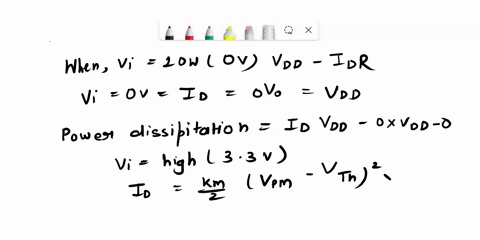 When, Vi = 20W (0V) VDD - IDR
Vi = 0V = ID = 0V0 = VDD
Power dissipitation = ID VDD - 0xVDD-0
Vi = high (3.3V)
ID = km/2 (Vpm - VTh)²